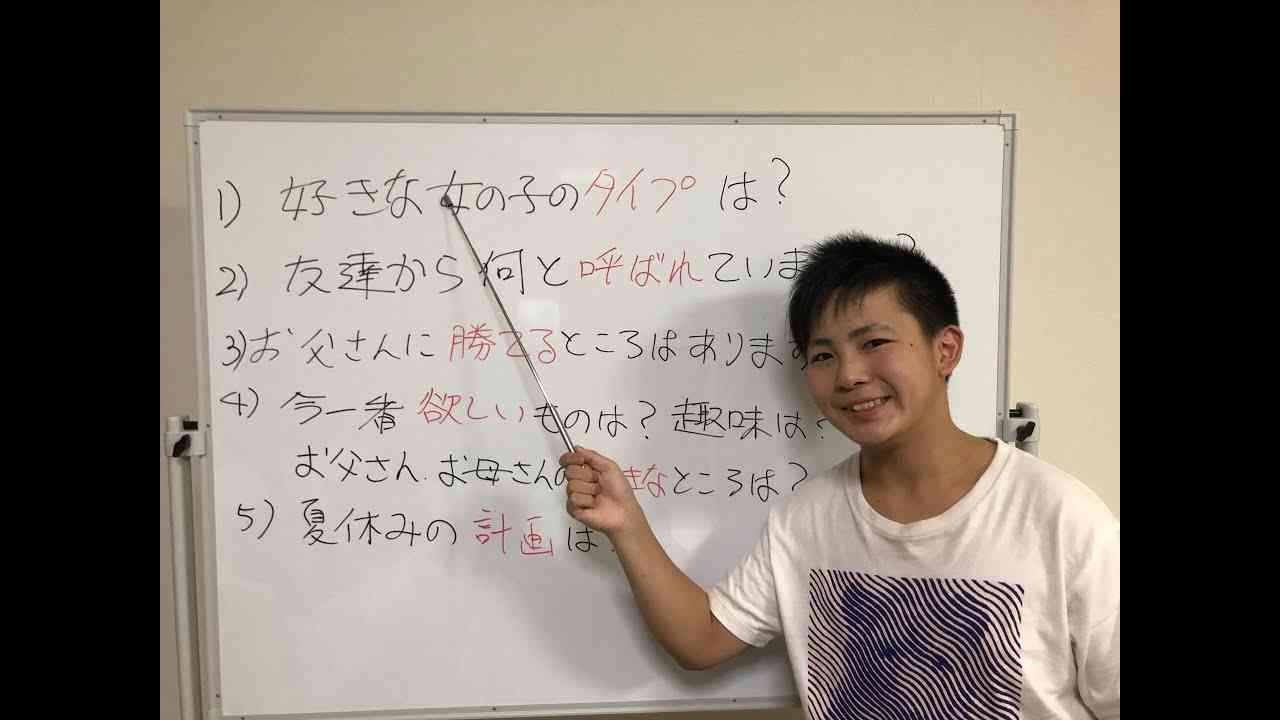 1) 好きな女の子のタイプは?
2) 友達から何と呼ばれていま ?
3) お父さんに勝てるところはあります
4) 今一番欲しいものは?趣味は?
お父さん.お母さんの きなところは?
5) 夏休みの計画は?